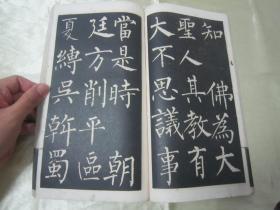 知佛為大
聖人其教有
大不思議事
當是時朝
廷方削平區
夏縛吳斡蜀